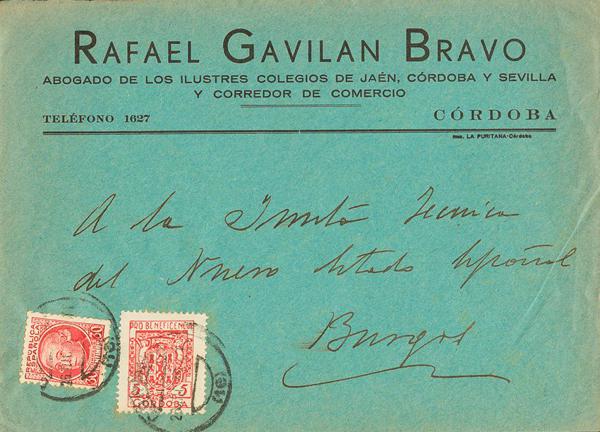 RAFAEL GAVILAN BRAVO
ABOGADO DE LOS ILUSTRES COLEGIOS DE JAÉN, CÓRDOBA Y SEVILLA
Y CORREDOR DE COMERCIO
TELÉFONO 1627
CÓRDOBA
LA PURITANA-Córdoba
A la Junta Tecnica
del Nuevo Estado Español
Burgos
REPUBLICA
ESPAÑOLA
30
PRO BENEFICENCIA
5 5
CÓRDOBA